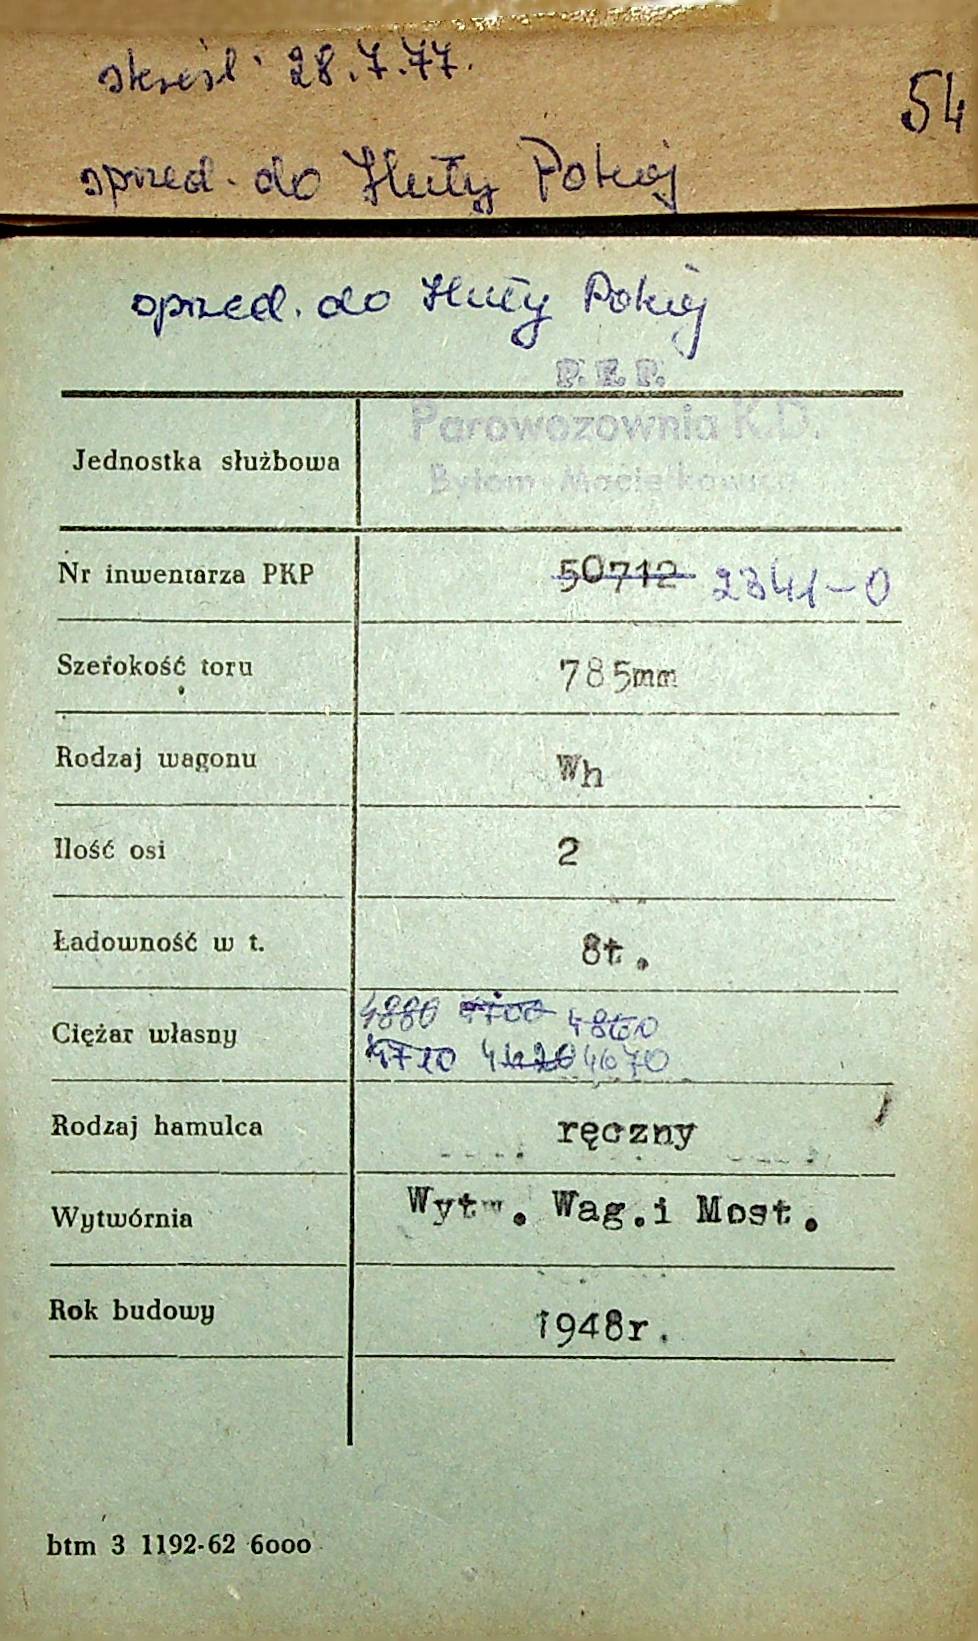 skreśl. 28.7.77.
54
sprzed. do Huty Pokój
sprzed. do Huty Pokój
P. K. P.
Parowozownia K.D.
Jednostka służbowa
Bytom
Nr inwentarza PKP 50712 2341-0
Szerokość toru 785mm
Rodzaj wagonu Wh
Ilość osi 2
Ładowność w t. 8t.
4880 4700 4860
Ciężar własny
4710 4420 4670
Rodzaj hamulca ręczny
Wytwórnia Wytw. Wag.i Most.
Rok budowy 1948r.
btm 3 1192-62 6000